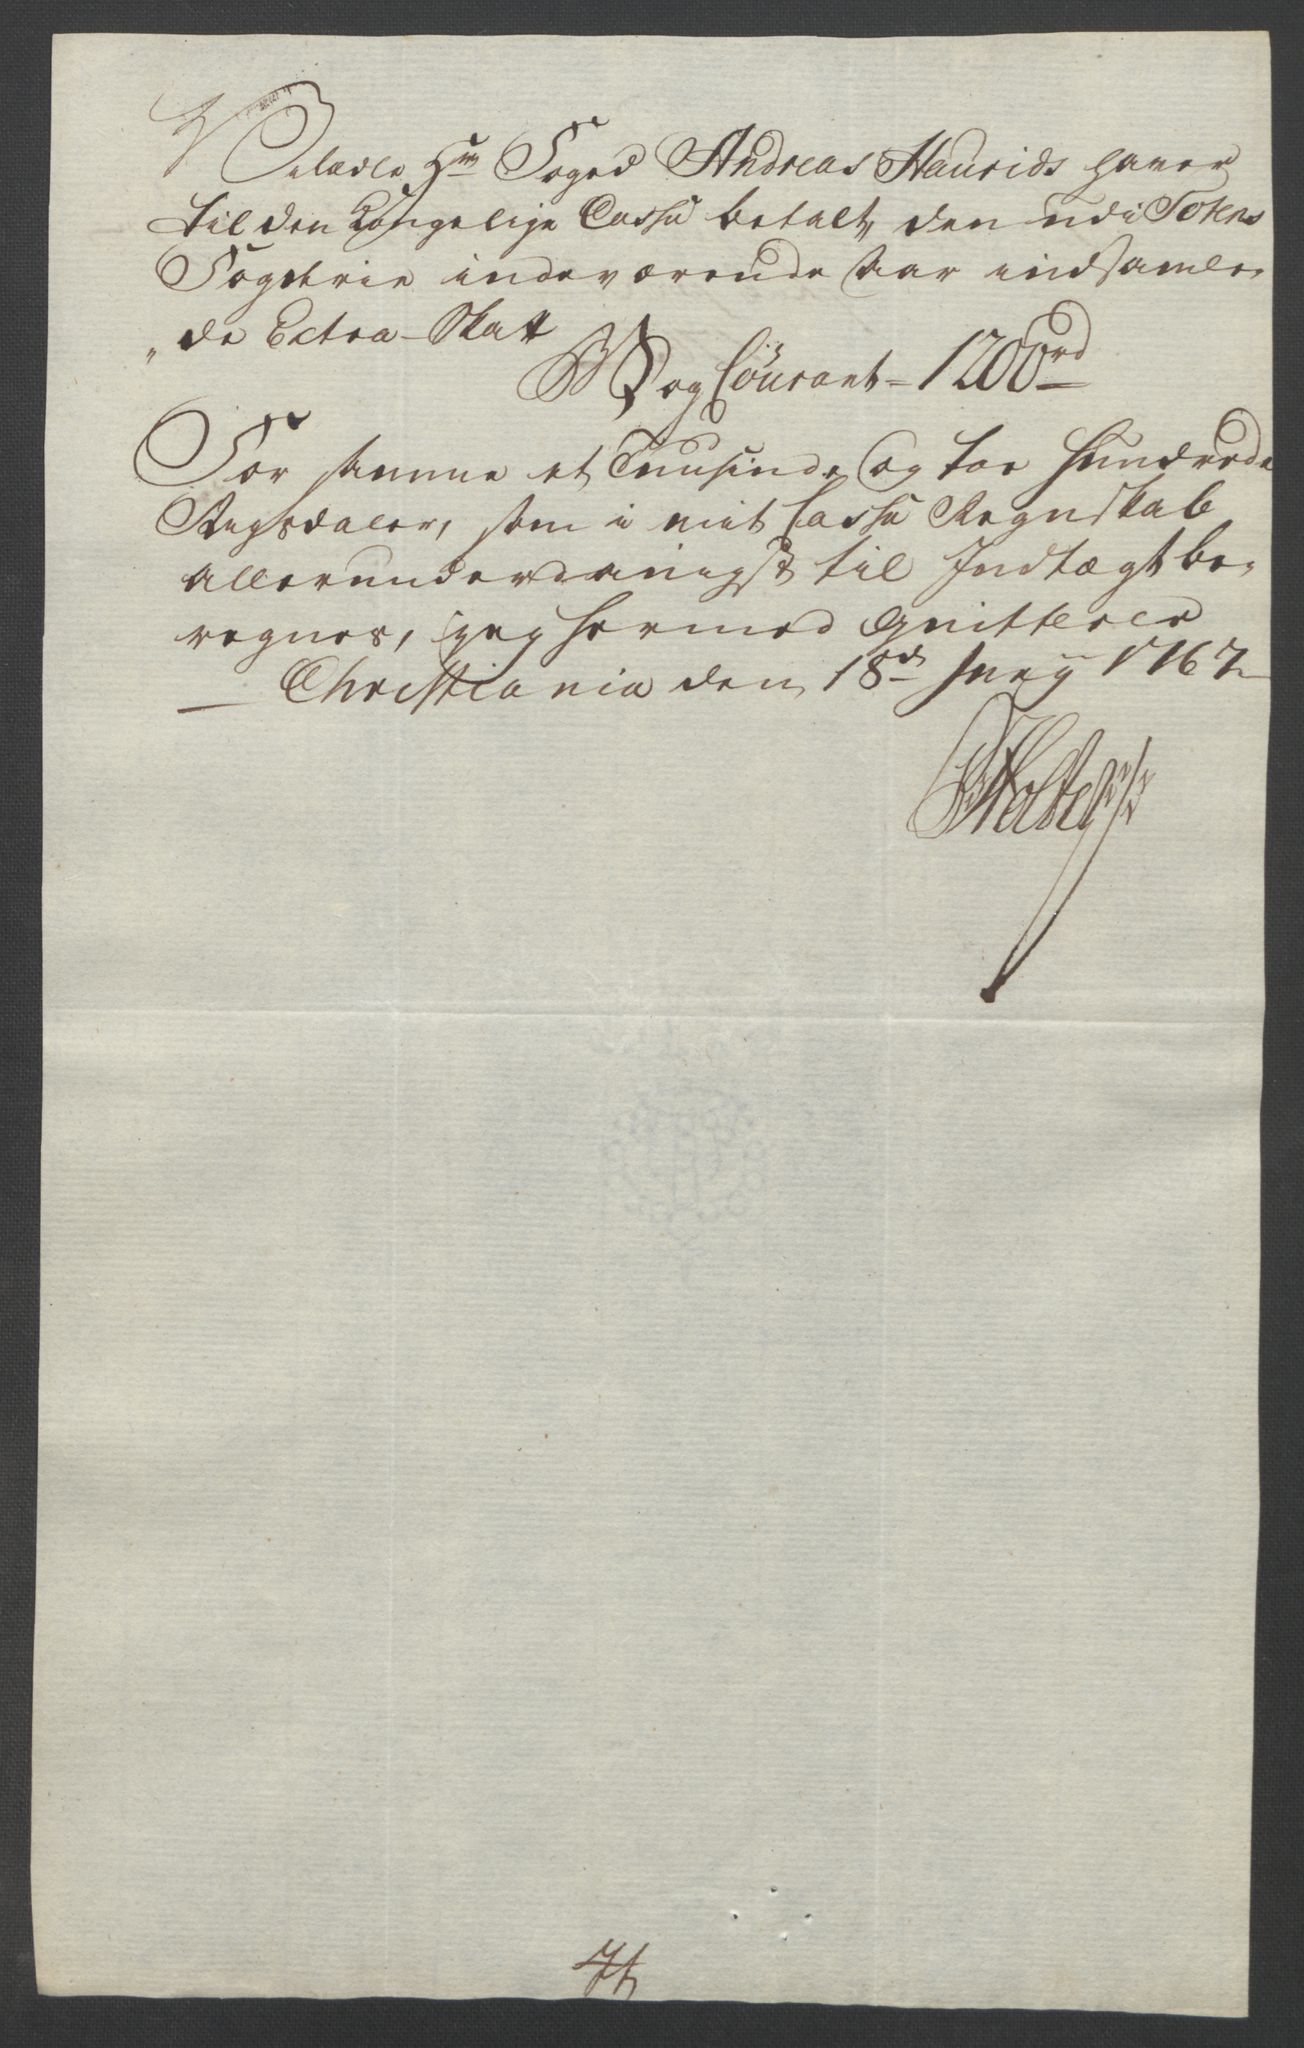 Velædle Hr Foged Andreas Haurids haver
til den Kongelige Cassa betalt, den udi Totens
Fogderie indeværende Aar indsamle-
de Extra-Skatt
og Courant - 1200 rd
For samme et Tuusinde og toe Hundrede
Rigsdaler, som i mit Cassa Regnskab
allerunderdanigst til Indtægt be-
regnes, jeg hermed qvitterer
Christiania den 18de Junij 1767
Holter